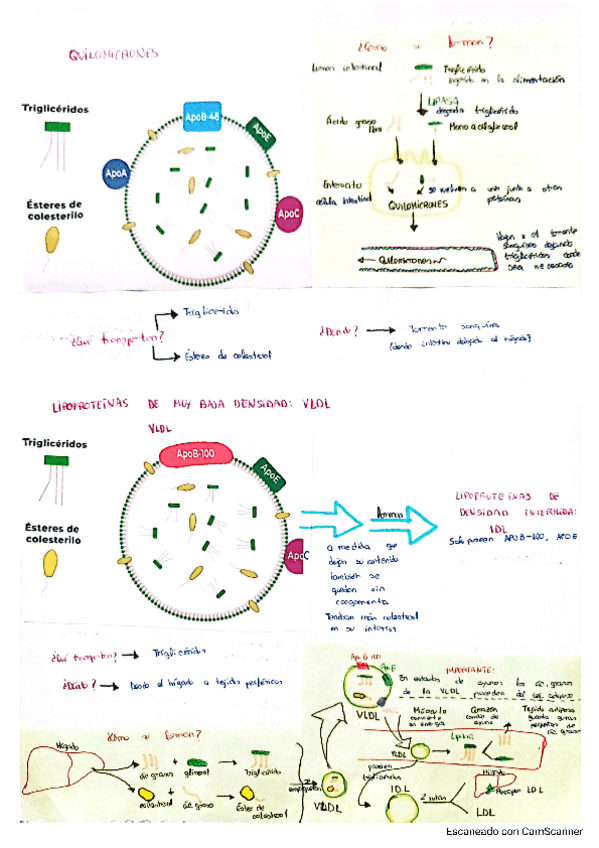 QUILOMICRONES
¿Cómo se forman?
Triglicéridos
ApoB-48
ApoE
ApoA
Ésteres de
colesterilo
ApoC
Lumen intestinal
Triglicérido
ingerido en la alimentación
LIPASA
degrada triglicérido
Ácido graso
libre
Mono acilglicerol
Enterocito
célula intestinal
se vuelven a unir junto a otras
proteínas
QUILOMICRONES
Viajan x el torrente
sanguíneo dejando
triglicéridos donde
sea necesario
← Quilomicrones
¿Qué transportan?
Triglicéridos
Ésteres de colesterol
¿Dónde? → Torrente sanguíneo
(desde intestino delgado al hígado)
LIPOPROTEÍNAS DE MUY BAJA DENSIDAD: VLDL
VLDL
Triglicéridos
ApoB-100
ApoE
Ésteres de
colesterilo
ApoC
a medida que
dejan su contenido
también se
quedan sin
Tendrán más colesterol
en su interior
Forman
LIPOPROTEÍNAS DE
DENSIDAD INTERMEDIA:
IDL
Solo poseen APOB-100, APOE
¿Qué transportan? → Triglicéridos
¿Dónde? → Desde el hígado a tejidos periféricos
¿Cómo se forman?
Hígado
ác. grasos + glicerol → Triglicérido
colesterol + ác. graso → Éster de
colesterol
VLDL
IMPORTANTE:
En estados de ayuno: los ác. grasos
de la VLDL proceden del tej. adiposo
ApoB-100
ApoE
VLDL
Músculo
convierte
en energía
Corazón
Tejido adiposo
guarda
VLDL
Lipasa
IDL
2 rutas
Hígado
LDL
LDL
Escaneado con CamScanner